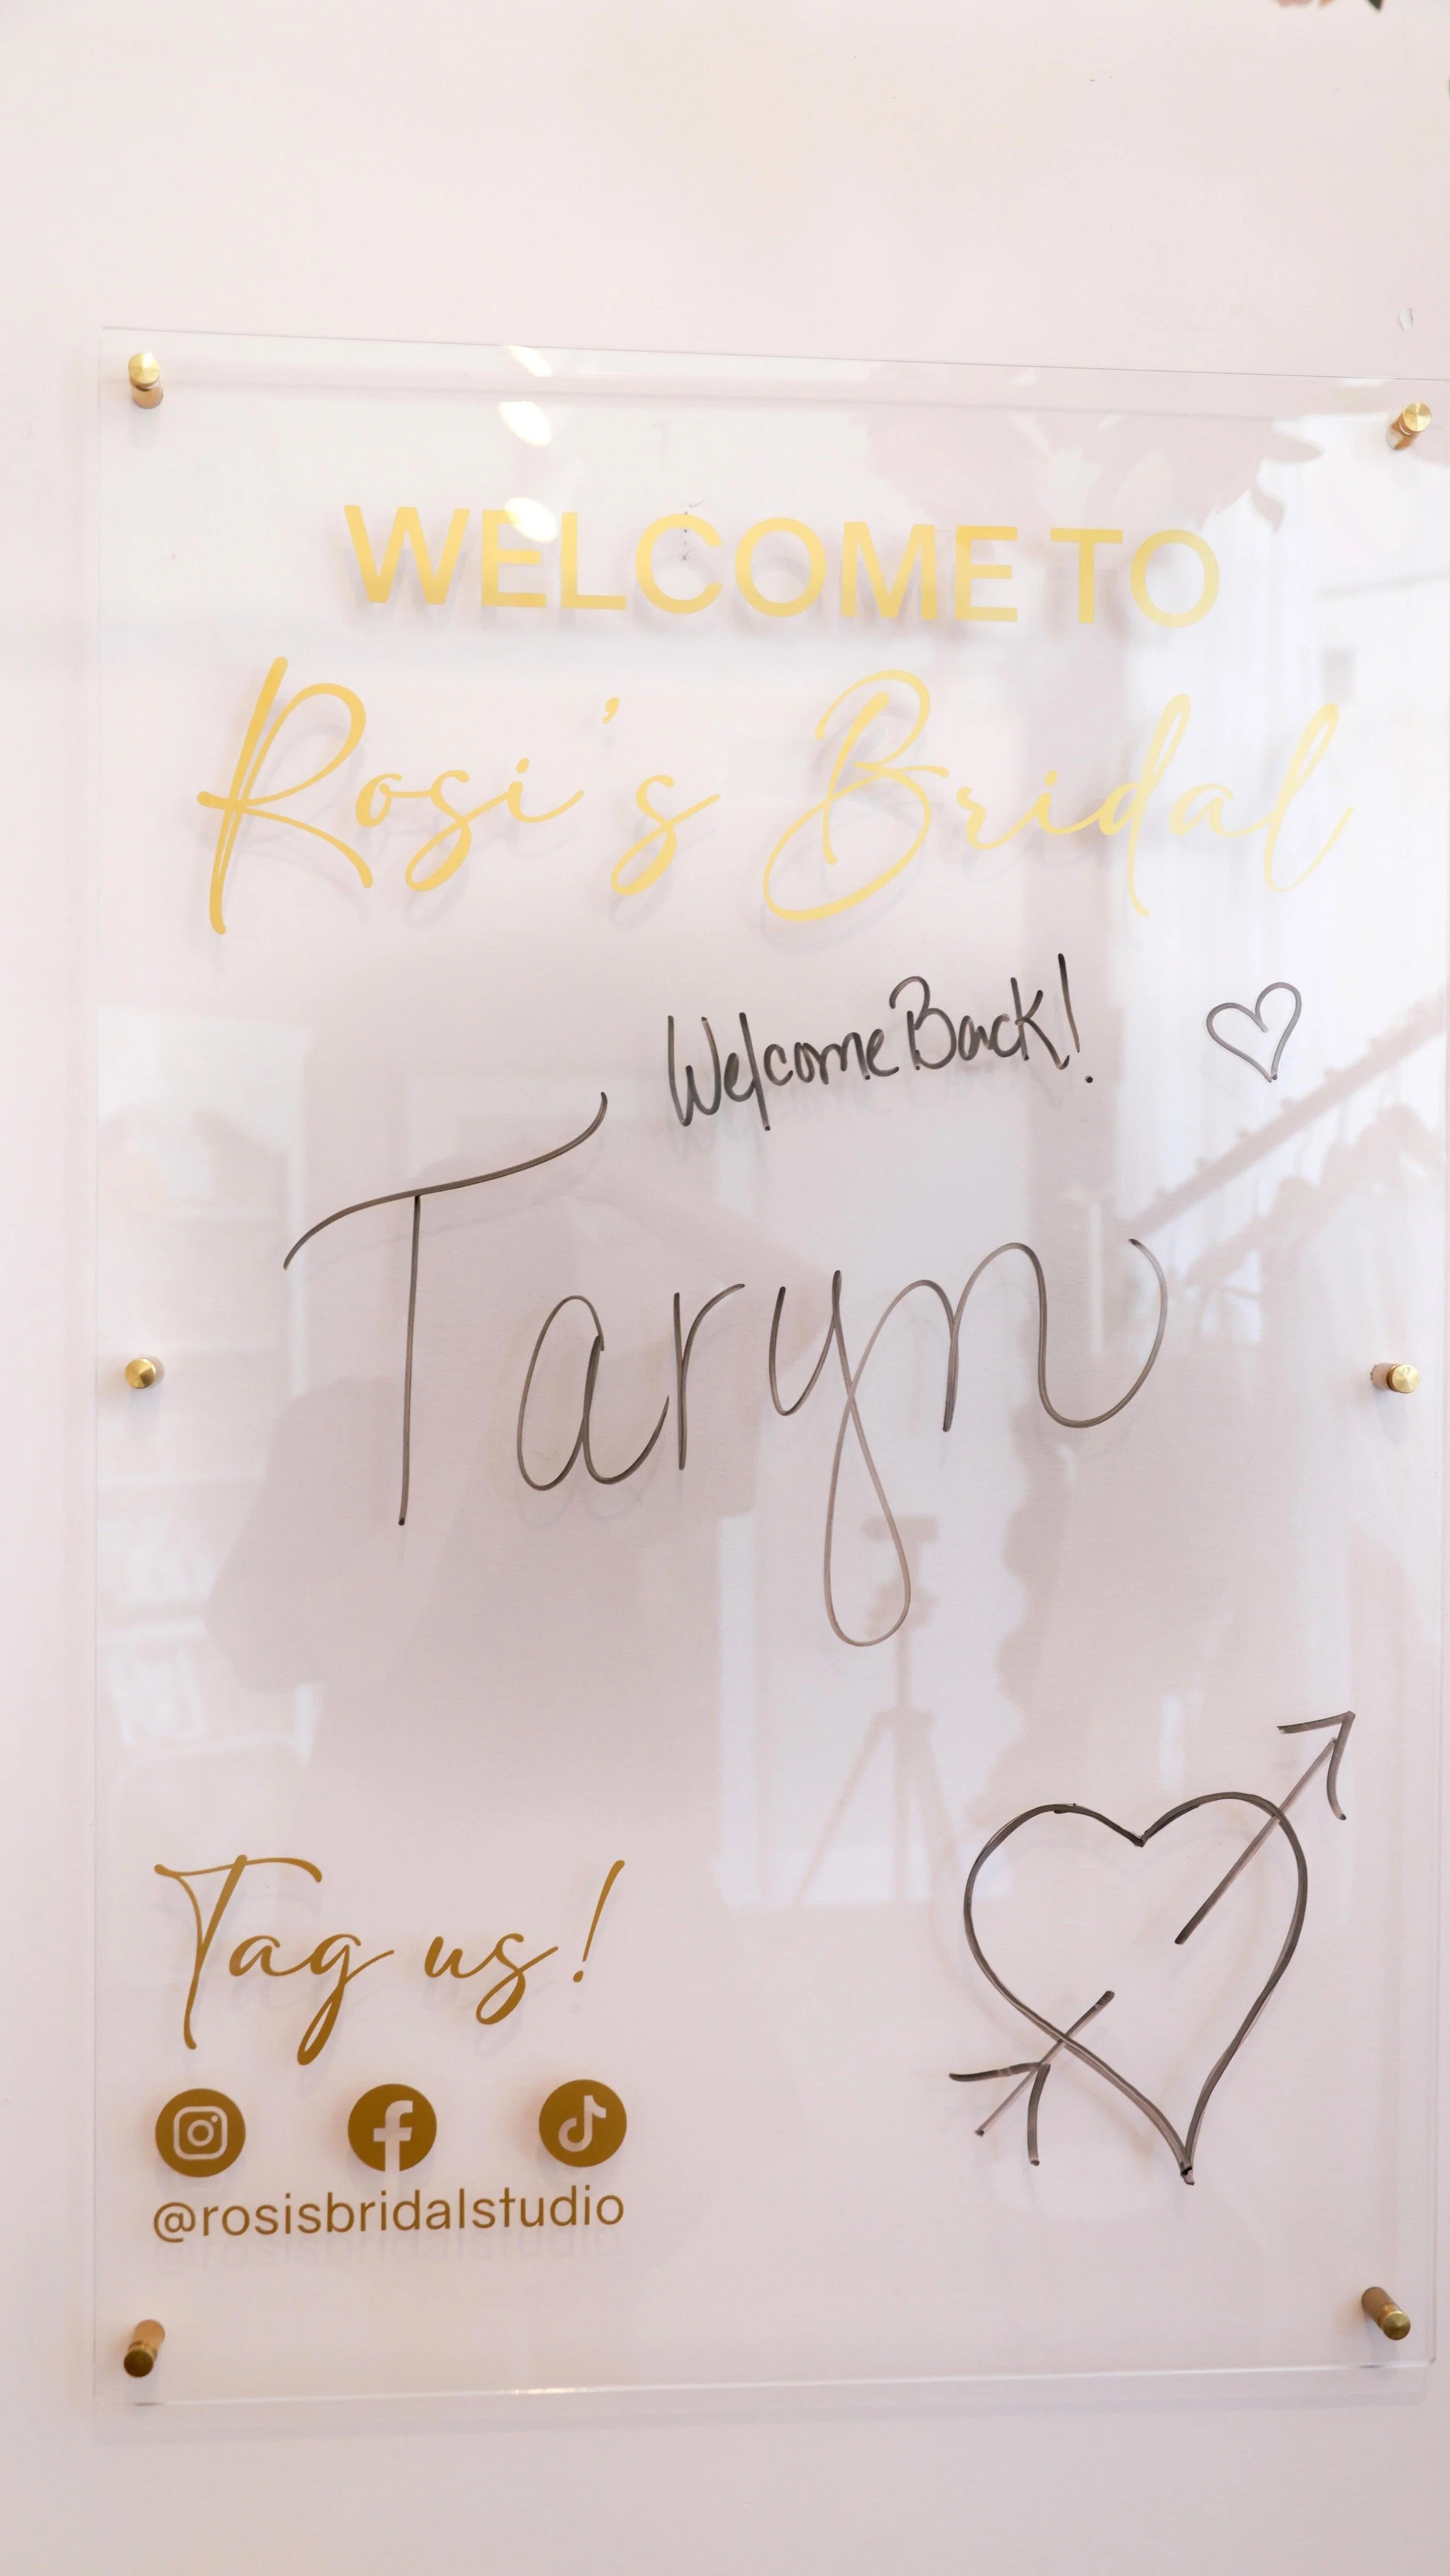 WELCOME TO
Rosi's Bridal
Welcome Back!
Taryn
Tag us!
@rosisbridalstudio